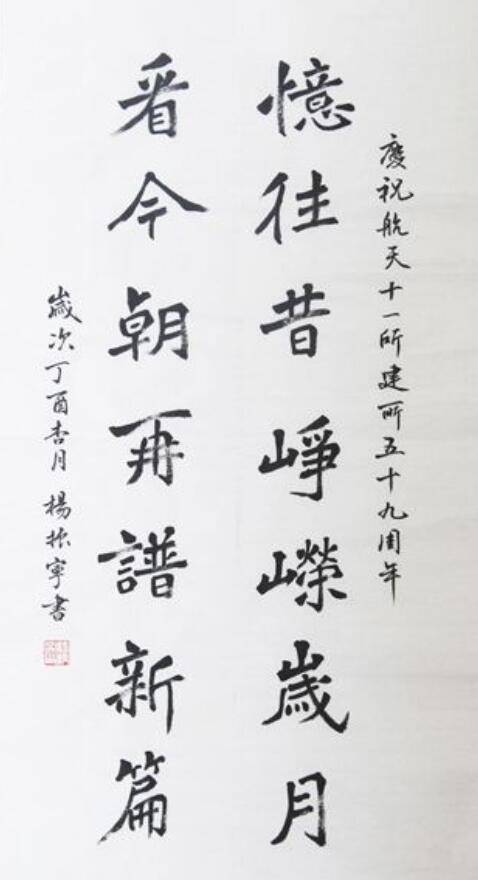 慶祝航天十一所建所五十九周年
憶往昔崢嶸歲月
看今朝再譜新篇
歲次丁酉杏月 楊振寧書